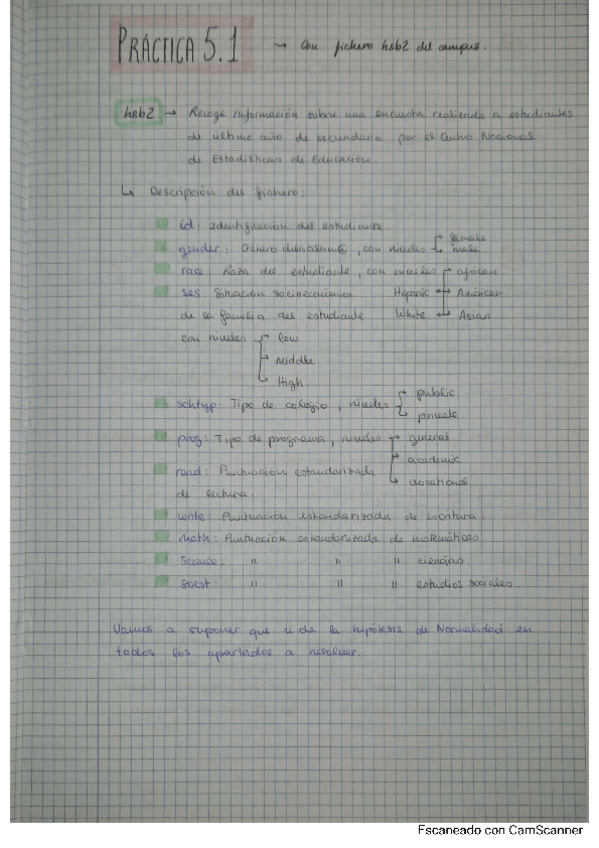 PRÁCTICA 5.1 → Con fichero hsb2 del campus.
hsb2 → Recoge información sobre una encuesta realizada a estudiantes
de último año de secundaria por el Centro Nacional
de Estadísticas de Educación.
↳ Descripción del fichero:
id: Identificación del estudiante.
gender: Género del alumn@, con niveles female
male
race Raza del estudiante, con niveles african
ses Situación socioeconómica Hispanic American
de la familia del estudiante White Asian
con niveles low
Middle
High.
schtyp: Tipo de colegio, niveles public
private.
prog: Tipo de programa, niveles general
academic
read: Puntuación estandarizada vocational
de lectura.
write: Puntuación estandarizada de escritura.
math: Puntuación estandarizada de matemáticas
Science: " " " ciencias
socst: " " " estudios sociales.
Vamos a suponer que se da la hipótesis de Normalidad en
todos los apartados a resolver.
Escaneado con CamScanner